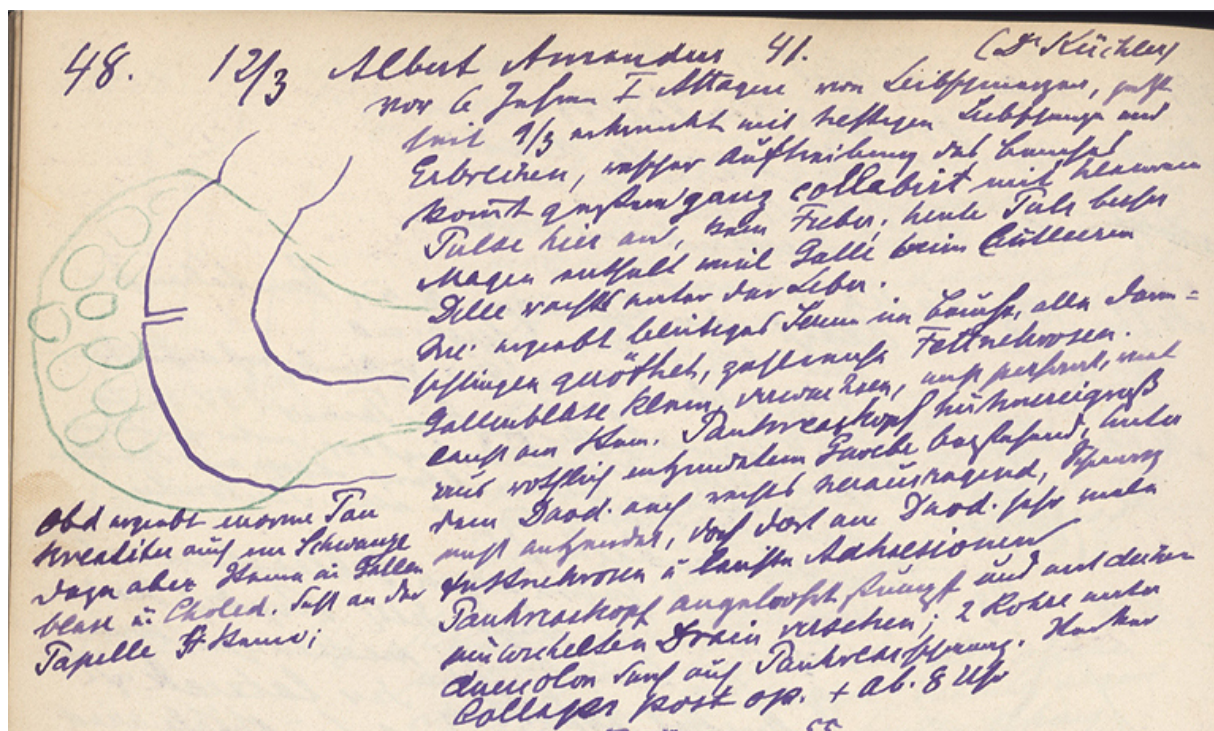 48. 12/3 Albert Amandus 41. (Dr Küchler)
vor 6 Jahren I Attaque von Leibschmerzen, jetzt
seit 9/3 erkrankt mit heftigen Leibschmerzen und
Erbrechen, rascher Auftreibung des Bauches
kom̄t gestern ganz collabirt mit
Pulse hier an, kein Fieber, heute Puls besser
Magen enthält viel Galle beim Ausleeren
Delle rechts unter der Leber.
Inc. ergiebt blutiges Serum im Bauche, alle Darm=
schlingen geröthet, zahlreiche Fettnekrosen.
Gallenblase klein, verwachsen, nicht
auch ein Stein. Pankreaskopf hühnereigroß
aus röthlich entzündetem Gewebe bestehend, unter
dem Duod. nach rechts herausragend, Schwanz
nicht entzündet, doch dort am Duod. sehr viele
Fettnekrosen u Adhaesionen
Pankreaskopf angelöst stumpf und mit
umwickelten Drain versehen; 2 Rohre unter
auf Pankreasschwanz.
Collaps post op. + Ab. 8 Uhr
Obd ergiebt enorme Pan
kreatitis auch im Schwanze
dagn aber Steine in Gallen
blase u. Choled. fast an der
Papille Steine;